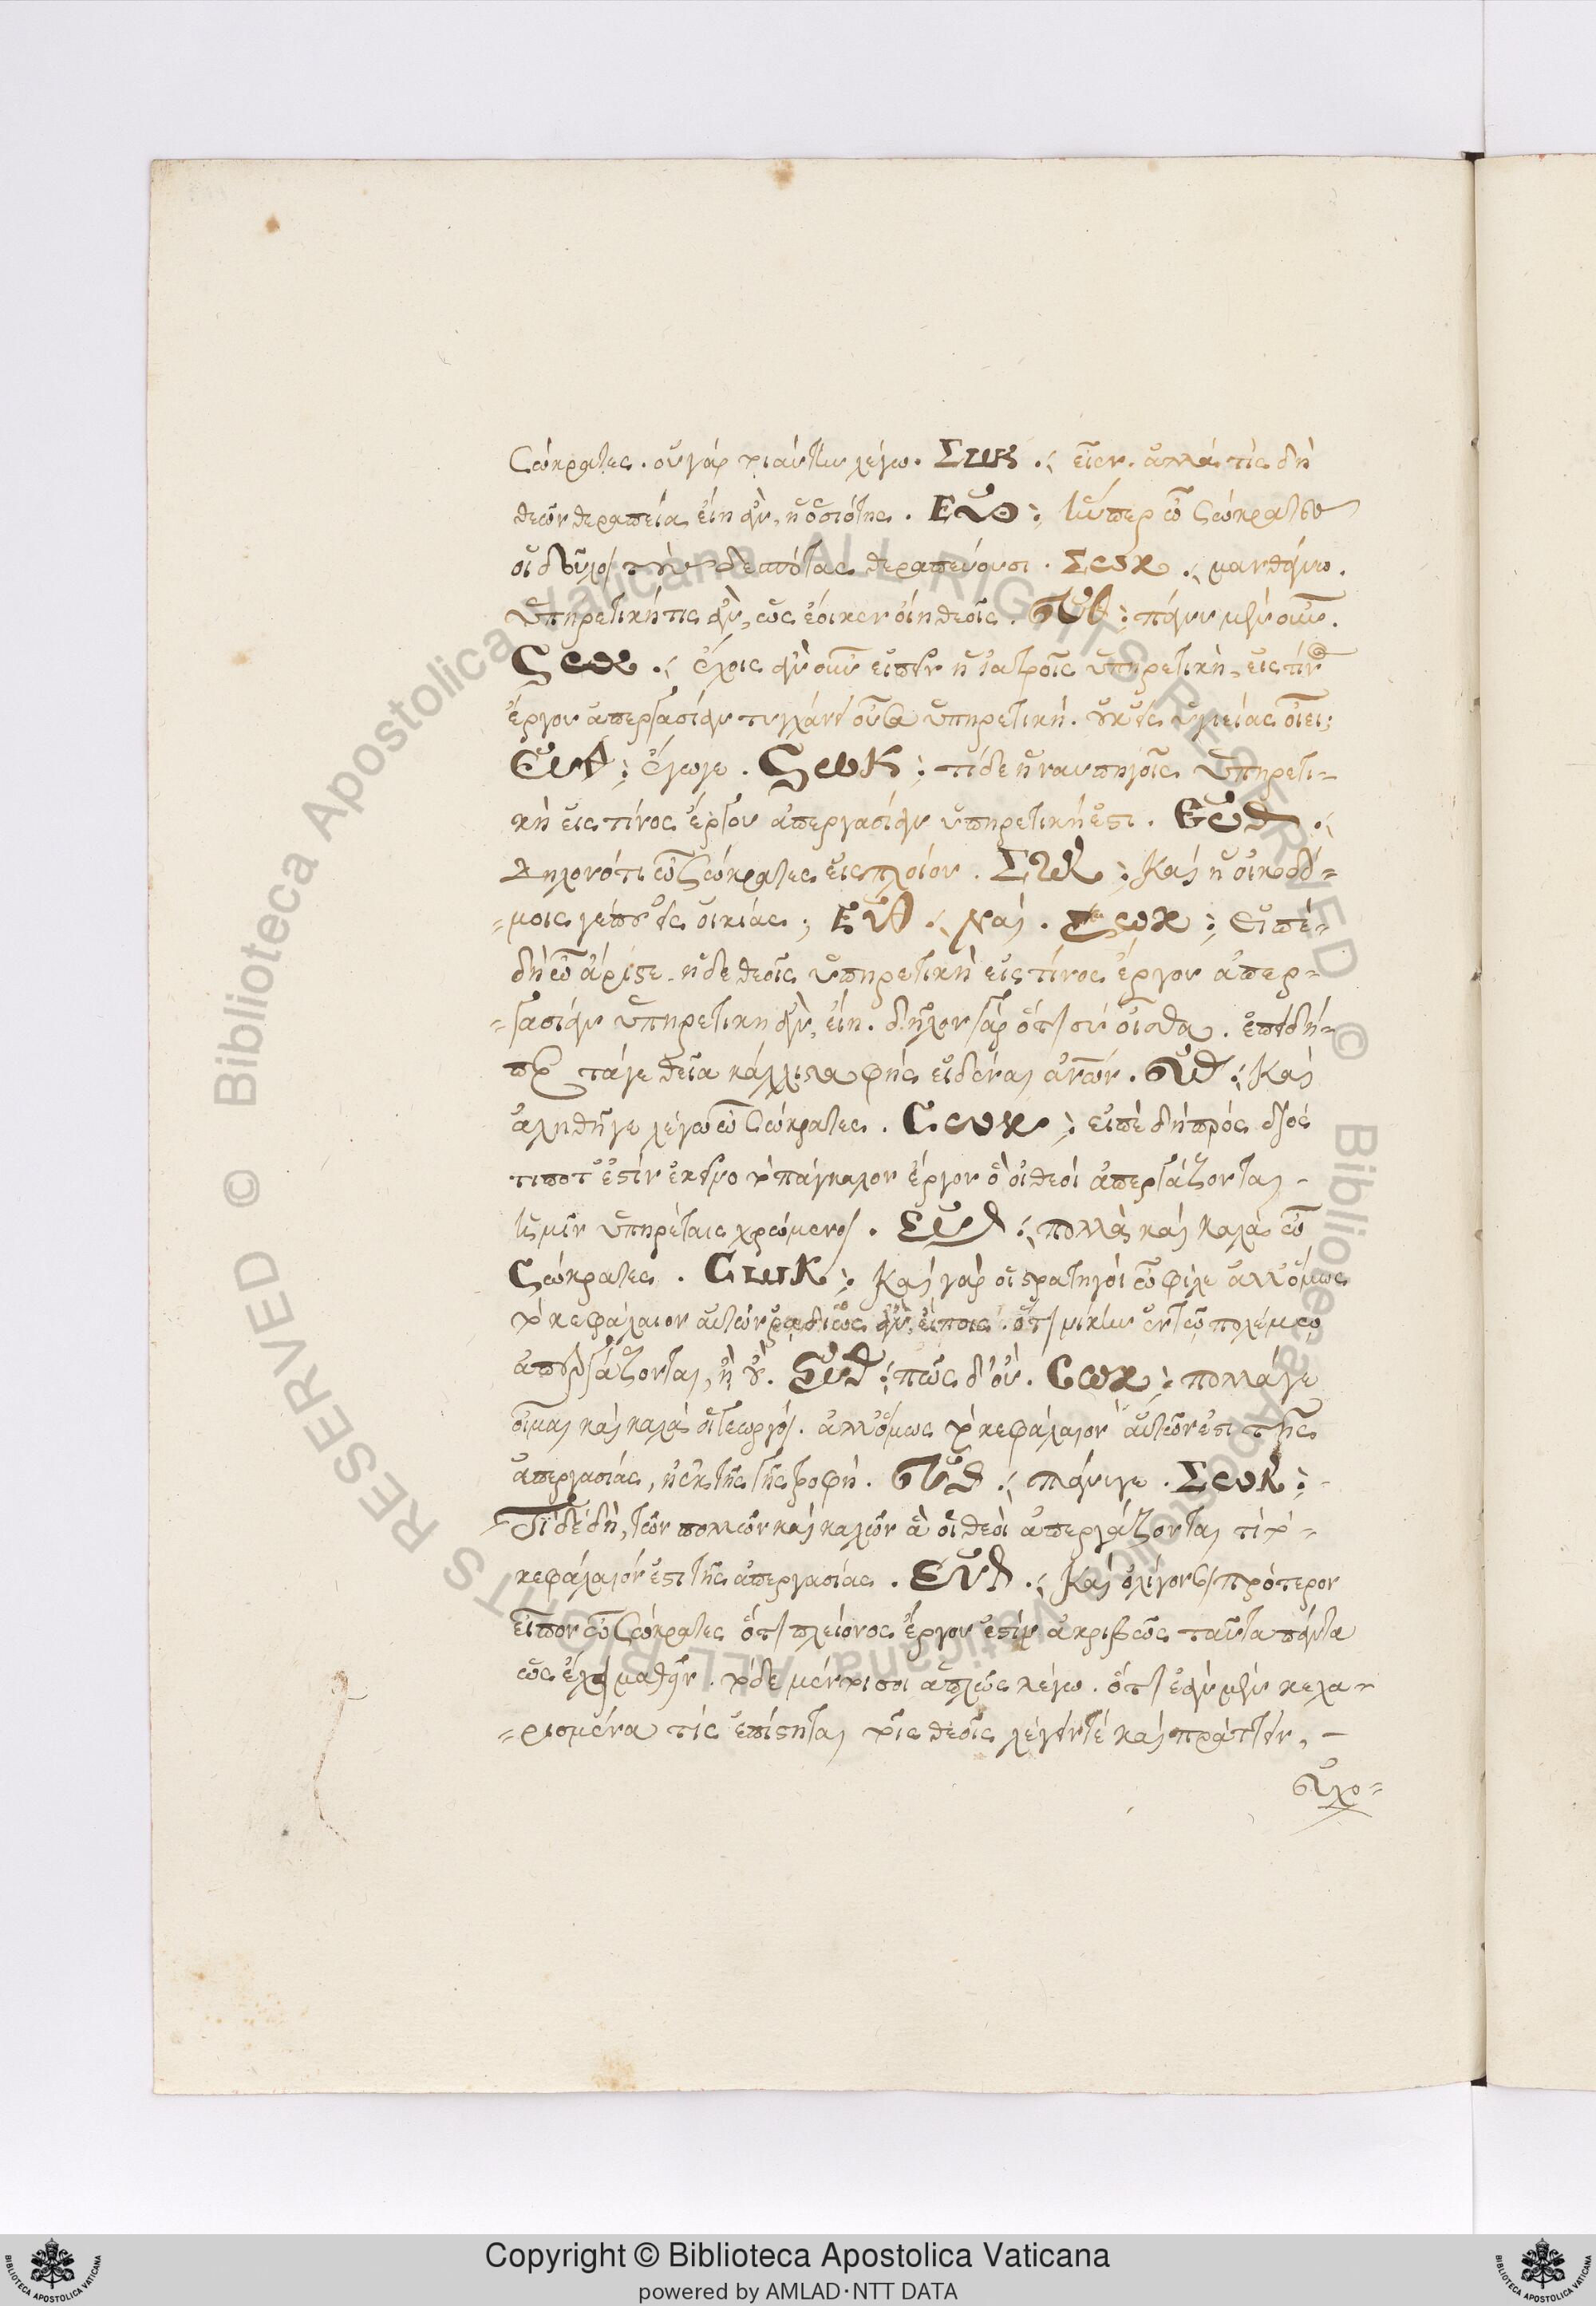 Σώκρατες. οὐ γὰρ τοιαύτην λέγω. Σωκ : εἶεν. ἀλλὰ τίς δὴ
θεῶν θεραπεία εἴη ἂν, ἡ ὁσιότης. Εὐθ : ἥνπερ ὦ Σώκρατες
οἱ δοῦλοι τοὺς δεσπότας θεραπεύουσι. Σωκ : μανθάνω.
ὑπηρετική τις ἂν, ὡς ἔοικεν εἴη θεοῖς. Εὐθ : πάνυ μὲν οὖν.
Σωκ : ἔχοις ἂν οὖν εἰπεῖν ἡ ἰατροῖς ὑπηρετικὴ, εἰς τίνος
ἔργου ἀπεργασίαν τυγχάνει οὖσα ὑπηρετική. οὐκ εἰς ὑγιείας οἴει;
Εὐθ : ἔγωγε. Σωκ : τί δὲ ἡ ναυπηγοῖς ὑπηρετι=
κὴ εἰς τίνος ἔργου ἀπεργασίαν ὑπηρετική ἐστι. Εὐθ :
Δῆλον ὅτι ὦ Σώκρατες εἰς πλοίου. Σωκ : Καὶ ἡ οἰκοδό=
=μοις γέ που εἰς οἰκίας; Εὐθ : Ναί. Σωκ : Εἰπὲ=
δὴ ὦ ἄριστε. ἡ δὲ θεοῖς ὑπηρετικὴ εἰς τίνος ἔργου ἀπερ=
=γασίαν ὑπηρετικὴ ἂν, εἴη. δῆλον γὰρ ὅτι σὺ οἶσθα. ἐπειδή=
περ τά γε θεῖα κάλλιστα φῂς εἰδέναι ἀνῶν. Εὐθ : Καὶ
ἀληθῆ γε λέγω ὦ Σώκρατες. Σωκ : εἰπὲ δὴ πρὸς διὸς
τί ποτ' ἐστὶν ἐκεῖνο τὸ πάγκαλον ἔργον ὃ οἱ θεοὶ ἀπεργάζονται
ἡμῖν ὑπηρέταις χρώμενοι. Εὐθ : πολλὰ καὶ καλὰ ὦ
Σώκρατες. Σωκ : Καὶ γὰρ οἱ στρατηγοὶ ὦ φίλε ἀλλ' ὅμως
τὸ κεφάλαιον αὐτῶν ῥαδίως ἂν, εἴποις. ὅτι νίκην ἐν τῷ πολέμῳ
ἀπεργάζονται, ἢ οὔ. Εὐθ : πῶς δ' οὔ. Σωκ : πολλά γε
οἶμαι καὶ καλὰ οἱ γεωργοί. ἀλλ' ὅμως τὸ κεφάλαιον αὐτῶν ἐστι τῆς
ἀπεργασίας, ἡ ἐκ τῆς γῆς τροφή. Εὐθ : πάνυ γε. Σωκ :
Τί δὲ δὴ, τῶν πολλῶν καὶ καλῶν ἃ οἱ θεοὶ ἀπεργάζονται τί τὸ=
κεφάλαιόν ἐστι τῆς ἀπεργασίας. Εὐθ : Καὶ ὀλίγον σοι πρότερον
εἶπον ὦ Σώκρατες ὅτι πλείονος ἔργου ἐστὶν ἀκριβῶς ταῦτα πάντα
ὡς ἔχει μαθεῖν. τόδε μέντοι σοι ἁπλῶς λέγω. ὅτι ἐὰν μὲν κεχα=
=ρισμένα τίς ἐπίστηται τοῖς θεοῖς λέγειν τὲ καὶ πράττειν,
εὐχο=